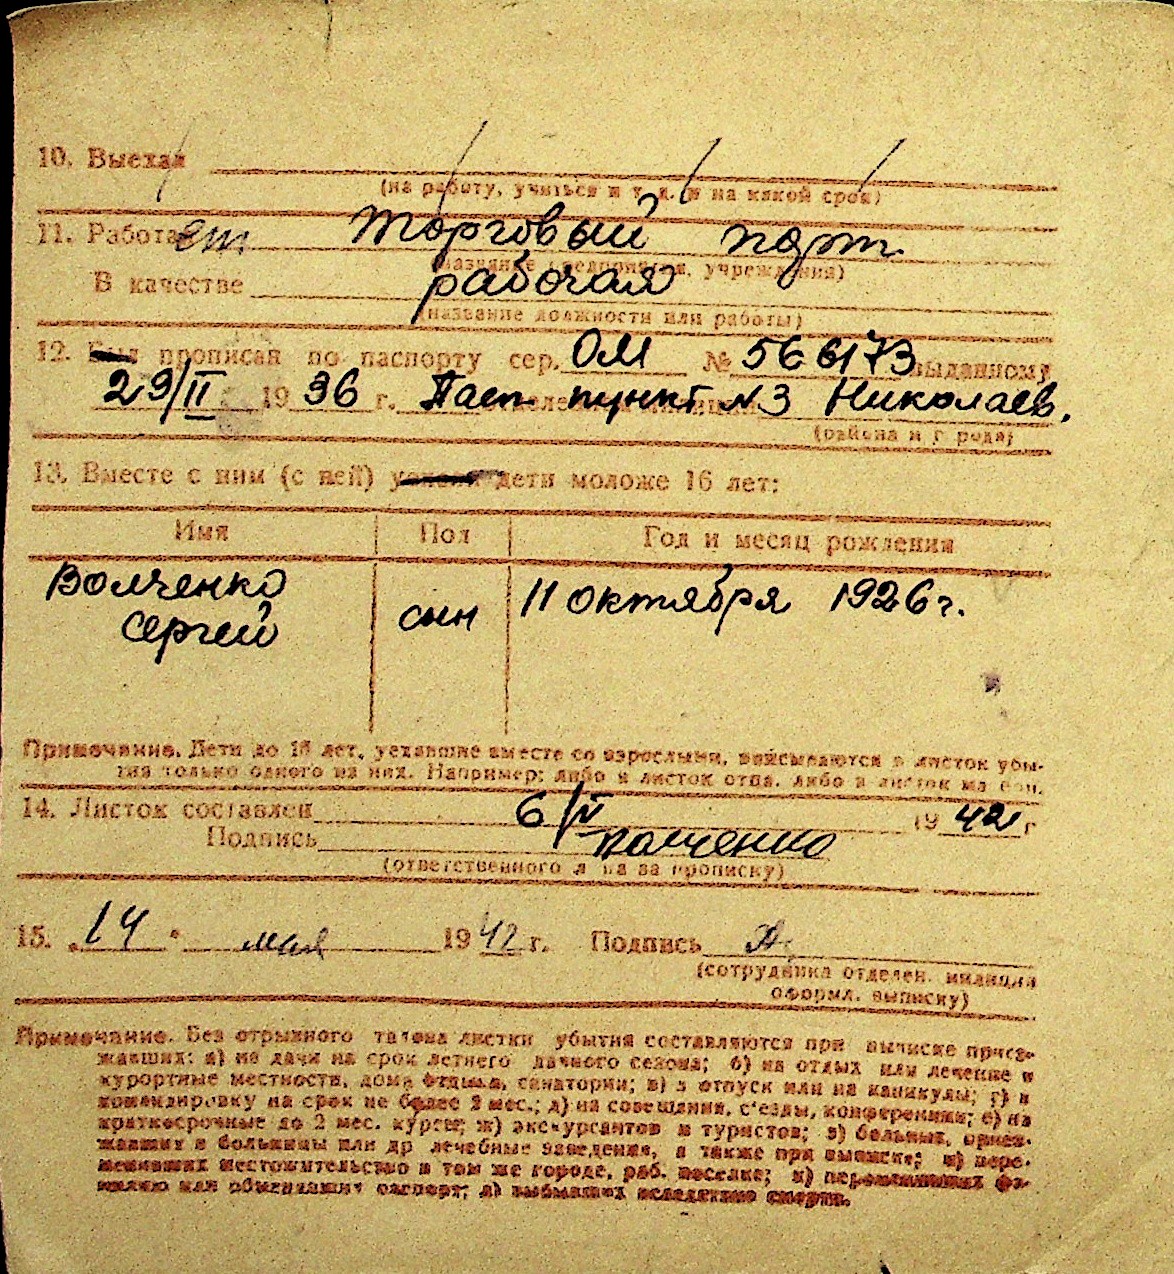 10. Выехал
(на работу, учиться и т. д. и на какой срок)
11. Работает Торговый порт
(название предприятия, учреждения)
В качестве рабочая
(название должности или работы)
12. Был прописан по паспорту сер. ОМ № 566173 выданному
29/II 1936 г. Пасп. пункт N3 Николаев.
(района и города)
13. Вместе с ним (с ней) дети моложе 16 лет:
Имя Пол Год и месяц рождения
Волченко
Сергей сын 11 октября 1926 г.
Примечание. Дети до 16 лет, уехавшие вместе со взрослыми, вписываются в листок убы-
тия только одного из них. Например: либо в листок отца, либо в листок матери.
14. Листок составлен 6/V 1942 г
Подпись
(ответственного лица за прописку)
15. „14" мая 1942 г. Подпись
(сотрудника отделен. милиции
оформл. выписку)
Примечание. Без отрывного талона листки убытия составляются при выписке приез-
жавших: а) на дачи на срок летнего дачного сезона; б) на отдых или лечение в
курортные местности, дома отдыха, санатории; в) в отпуск или на каникулы; г) в
командировку на срок не более 2 мес.; д) на совещания, с'езды, конференции; е) на
краткосрочные до 2 мес. курсы; ж) экскурсантов и туристов; з) больных, приез-
жавших в больницы или др лечебные заведения, а также при выписке; и) пере-
менивших местожительство в том же городе, раб. поселке; к) переменивших фа-
милию или обменявших паспорт; л) выбывших вследствие смерти.